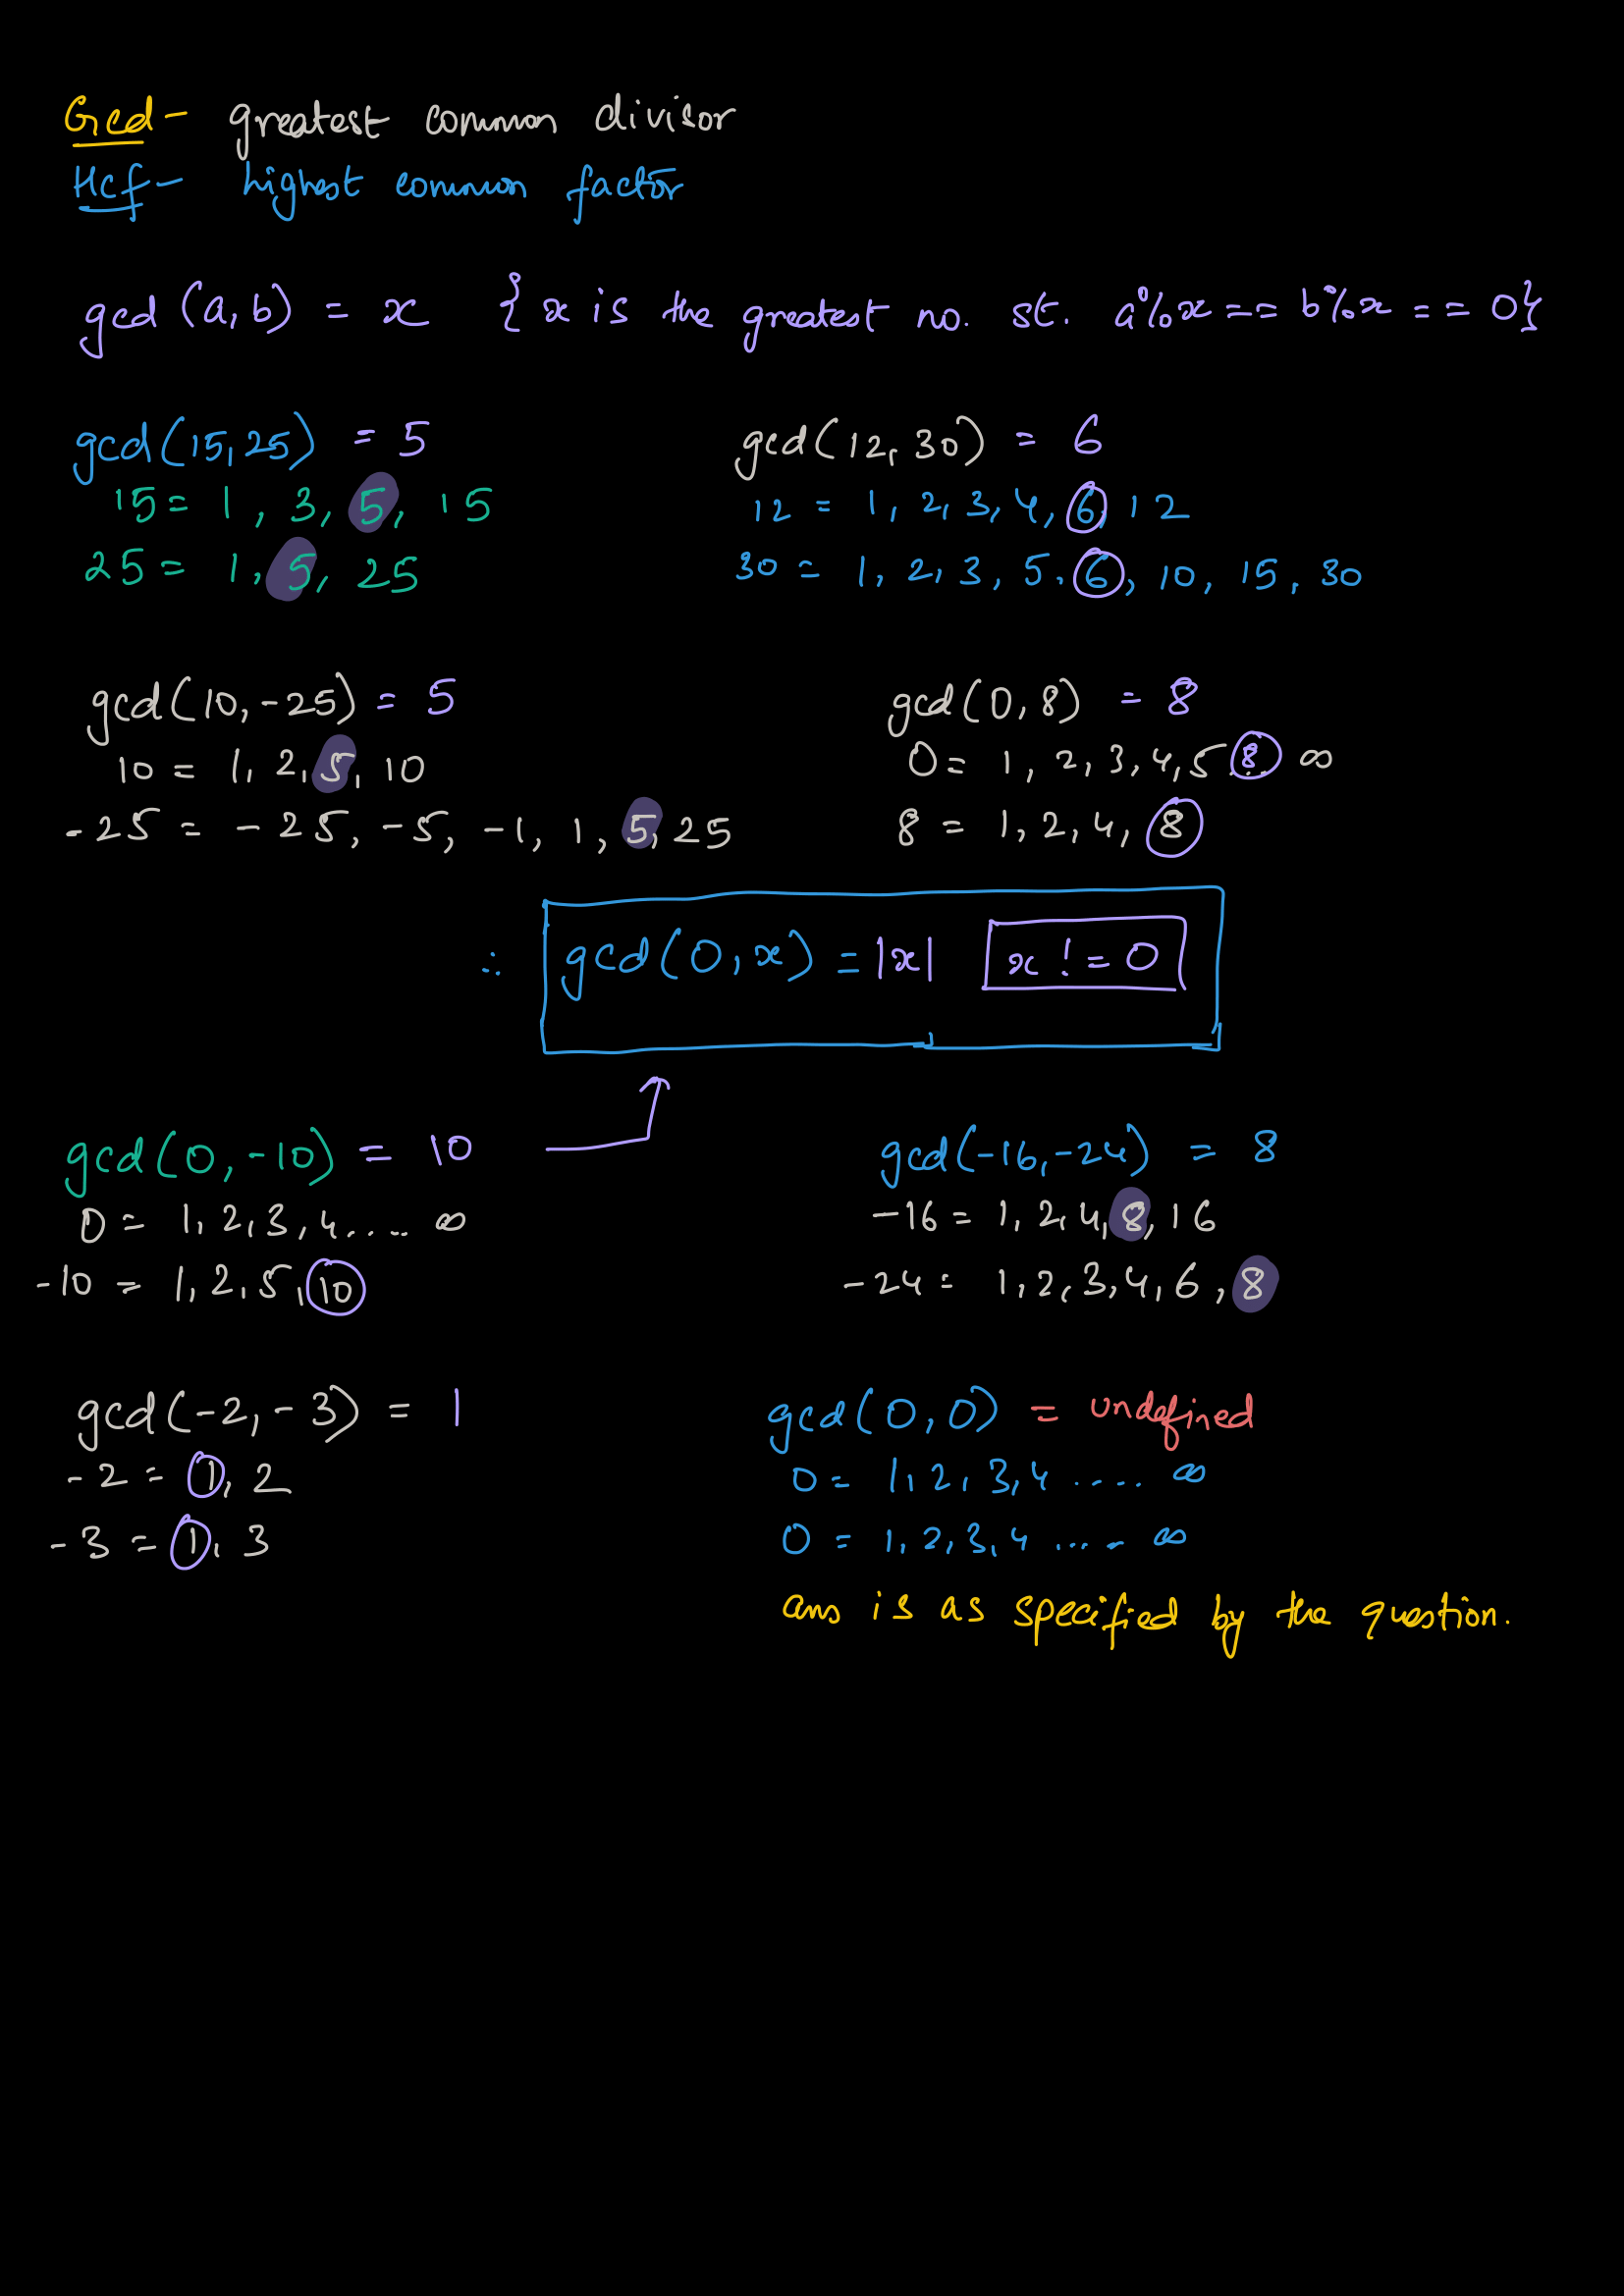 Gcd - greatest common divisor
Hcf - highest common factor
gcd (a, b) = x { x is the greatest no. st. a%x == b%x == 0}
gcd(15, 25) = 5
15 = 1, 3, 5, 15
25 = 1, 5, 25
gcd(12, 30) = 6
12 = 1, 2, 3, 4, 6, 12
30 = 1, 2, 3, 5, 6, 10, 15, 30
gcd(10, -25) = 5
10 = 1, 2, 5, 10
-25 = -25, -5, -1, 1, 5, 25
gcd(0, 8) = 8
0 = 1, 2, 3, 4, 5 .. 8.. ∞
8 = 1, 2, 4, 8
∴ gcd(0, x) = |x| x != 0
gcd(0, -10) = 10
0 = 1, 2, 3, 4 .... ∞
-10 = 1, 2, 5, 10
gcd(-16, -24) = 8
-16 = 1, 2, 4, 8, 16
-24 = 1, 2, 3, 4, 6, 8
gcd(-2, -3) = 1
-2 = 1, 2
-3 = 1, 3
gcd(0, 0) = undefined
0 = 1, 2, 3, 4 .... ∞
0 = 1, 2, 3, 4 .... ∞
ans is as specified by the question.